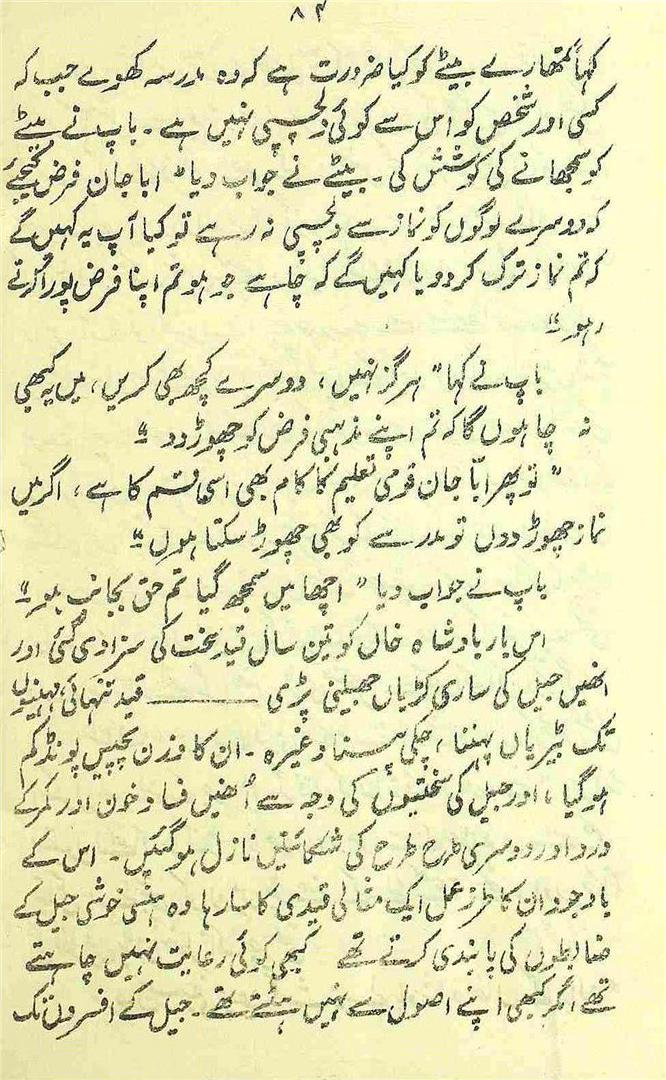 ۸۴
کہا تمھارے بیٹے کو کیا ضرورت ہے کہ وہ مدرسہ کھولے جب کہ
کسی اور شخص کو اس سے کوئی دلچسپی نہیں ہے۔ باپ نے بیٹے
کو سمجھانے کی کوشش کی۔ بیٹے نے جواب دیا" ابا جان فرض کیجیئے
کہ دوسرے لوگوں کو نماز سے دلچسپی نہ رہے تو کیا آپ یہ کہیں گے
کہ تم نماز ترک کر دو یا کہیں گے کہ چاہے جو ہو تم اپنا فرض پورا کرتے
رہو"
باپ نے کہا" ہرگز نہیں، دوسرے کچھ بھی کریں، میں یہ کبھی
نہ چاہوں گا کہ تم اپنے مذہبی فرض کو چھوڑ دو"
"تو پھر ابّا جان قومی تعلیم کا کام بھی اسی قسم کا ہے، اگر میں
نماز چھوڑ دوں تو مدرسے کو بھی چھوڑ سکتا ہوں"
باپ نے جواب دیا" اچھا میں سمجھ گیا تم حق بجانب ہو"
اس بار بادشاہ خاں کو تین سال قید سخت کی سزا دی گئی اور
انھیں جیل کی ساری کڑیاں جھیلنی پڑی ——— قید تنہائی، مہینوں
تک بیڑیاں پہننا، چکی پیسنا وغیرہ۔ ان کا وزن پچپیں پونڈ کم
ہوگیا، اور جیل کی سختیوں کی وجہ سے اُنھیں فساد خون اور کمر کے
درد اور دوسری طرح طرح کی شکائتیں نازل ہوگئیں۔ اس کے
باوجود ان کا طرز عمل ایک مثالی قیدی کا سا رہا وہ ہنسی خوشی جیل کے
ضابطوں کی پابندی کرتے تھے کبھی کوئی رعایت نہیں چاہتے
تھے مگر کبھی اپنے اصول سے نہیں ہٹتے تھے۔ جیل کے افسروں تک